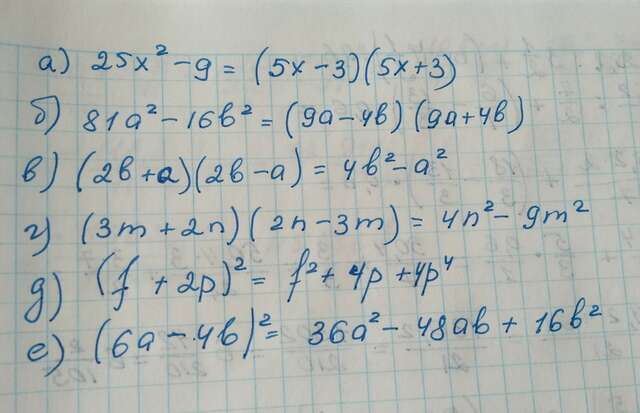 а) 25x² - 9 = (5x - 3)(5x + 3)
б) 81a² - 16b² = (9a - 4b) (9a + 4b)
в) (2b + a)(2b - a) = 4b² - a²
г) (3m + 2n)(2n - 3m) = 4n² - 9m²
д) (f + 2p)² = f² + 4p + 4p⁴
е) (6a - 4b)² = 36a² - 48ab + 16b²